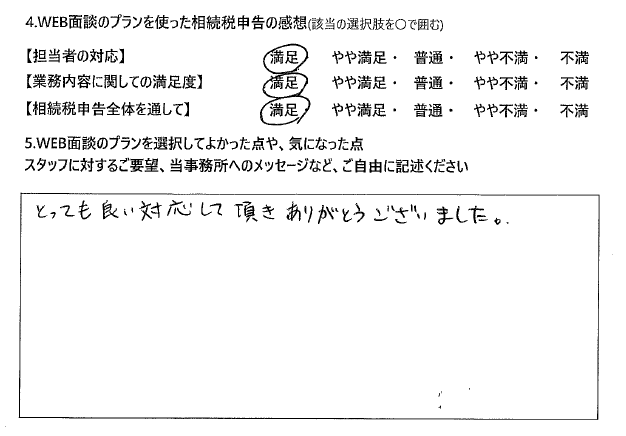 4.WEB面談のプランを使った相続税申告の感想(該当の選択肢を○で囲む)
【担当者の対応】 満足・ やや満足・ 普通・ やや不満・ 不満
【業務内容に関しての満足度】 満足・ やや満足・ 普通・ やや不満・ 不満
【相続税申告全体を通して】 満足・ やや満足・ 普通・ やや不満・ 不満
5.WEB面談のプランを選択してよかった点や、気になった点
スタッフに対するご要望、当事務所へのメッセージなど、ご自由に記述ください
とっても良い対応して頂きありがとうございました。